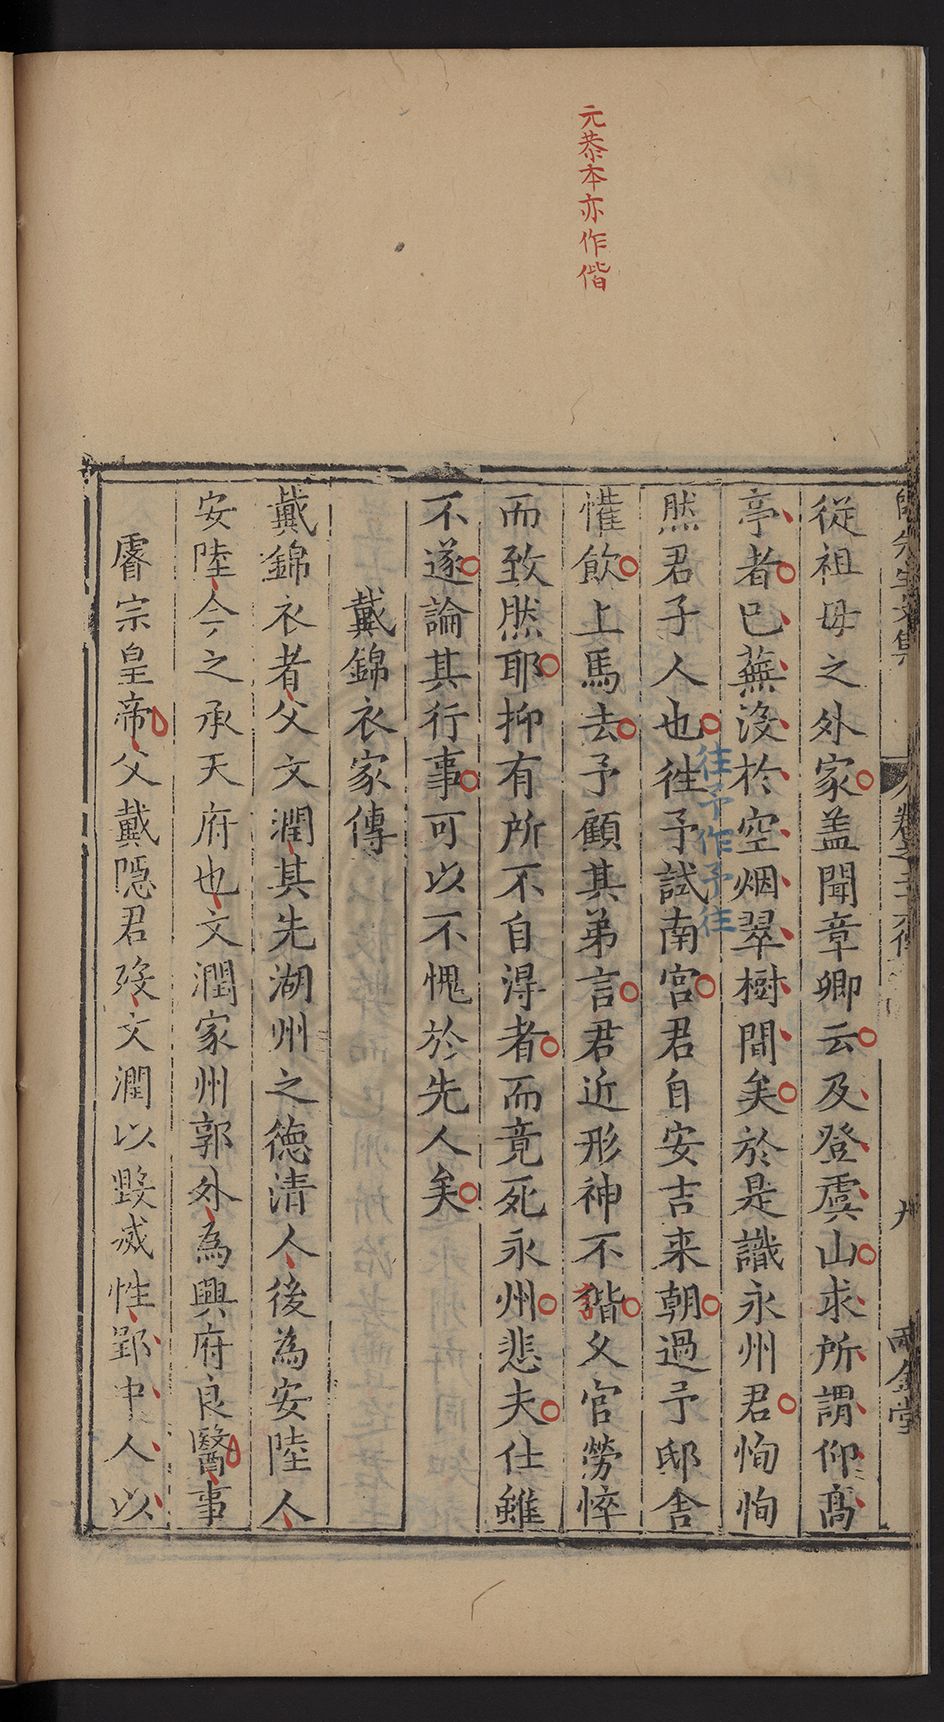 元恭本亦作偕
從祖母之外家盖聞章卿云及登虞山求所謂仰高
亭者已蕪沒於空烟翠樹間矣於是識永州君恂恂
然君子人也徃予試南宮君自安吉来朝過予邸舍
徃予作予徃
懽飲上馬去予顧其弟言君近形神不偕又官勞悴
而致然耶抑有所不自得者而竟死永州悲夫仕雖
不遂論其行事可以不愧於先人矣
戴錦衣家傳
戴錦衣者父文潤其先湖州之德清人後為安陸人
安陸今之承天府也文潤家州郭外為興府良醫事
睿宗皇帝父戴隱君歿文潤以毀滅性郢中人以